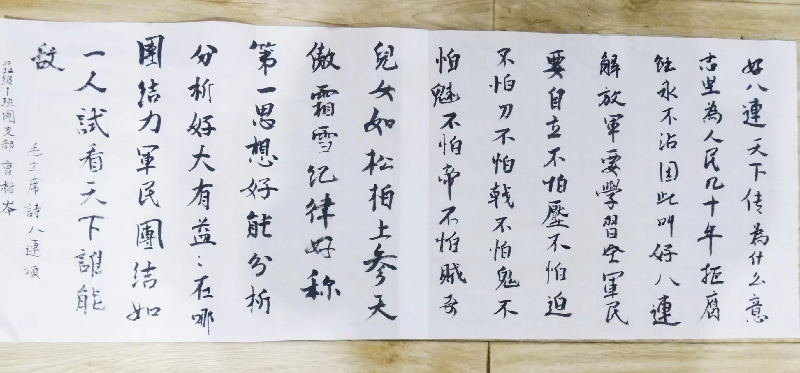 好八連天下传為什么意
志坚為人民几十年拒腐
蚀永不沾因此叫好八連
解放軍要學習全軍民
要自立不怕壓不怕迫
不怕刀不怕戟不怕鬼不
怕魅不怕帝不怕贼奇
兒女如松柏上參天
傲霜雪纪律好称
第一思想好能分析
分析好大有益〻在哪
團结力軍民團结如
一人試看天下誰能
敌
毛主席詩八連頌
级1班團支部